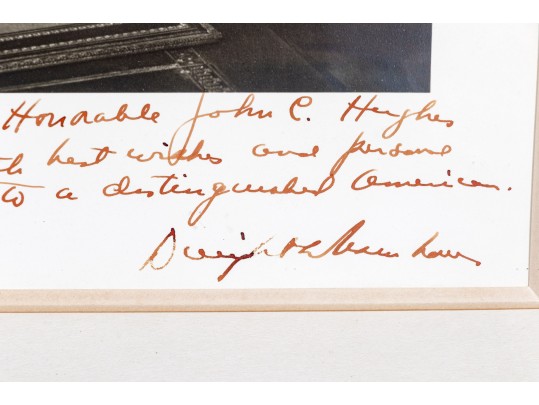 Honorable John C. Hughes
th best wishes and persona
to a distinguished American.
Dwight D Eisenhower